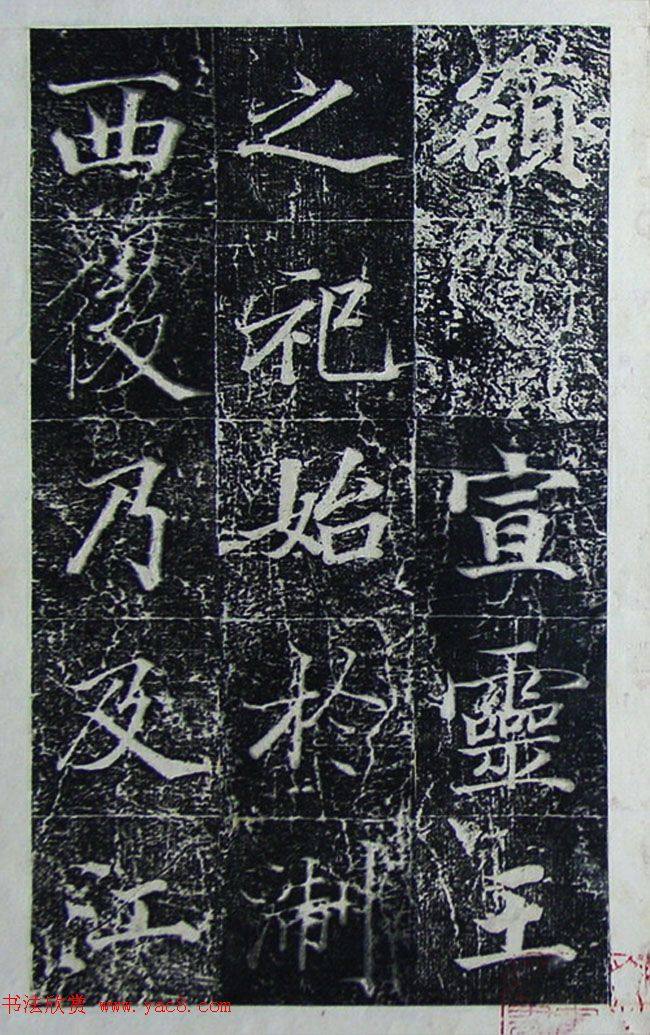 額宣靈主
之祀始於淛
西後乃及江
书法欣赏 www.yac8.com